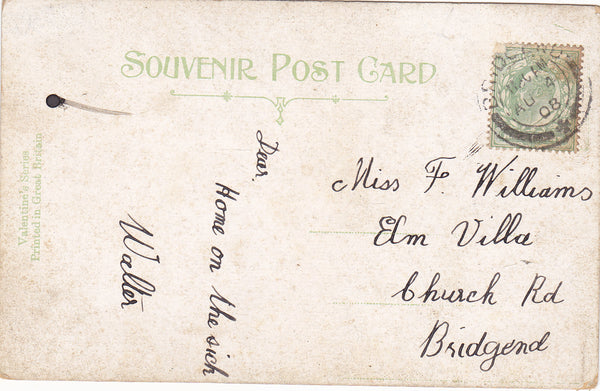 SOUVENIR POST CARD
Valentine's Series
Printed in Great Britain
Dear,
Home on the sick
Walter
Miss F. Williams
Elm Villa
Church Rd
Bridgend
AU 4
08